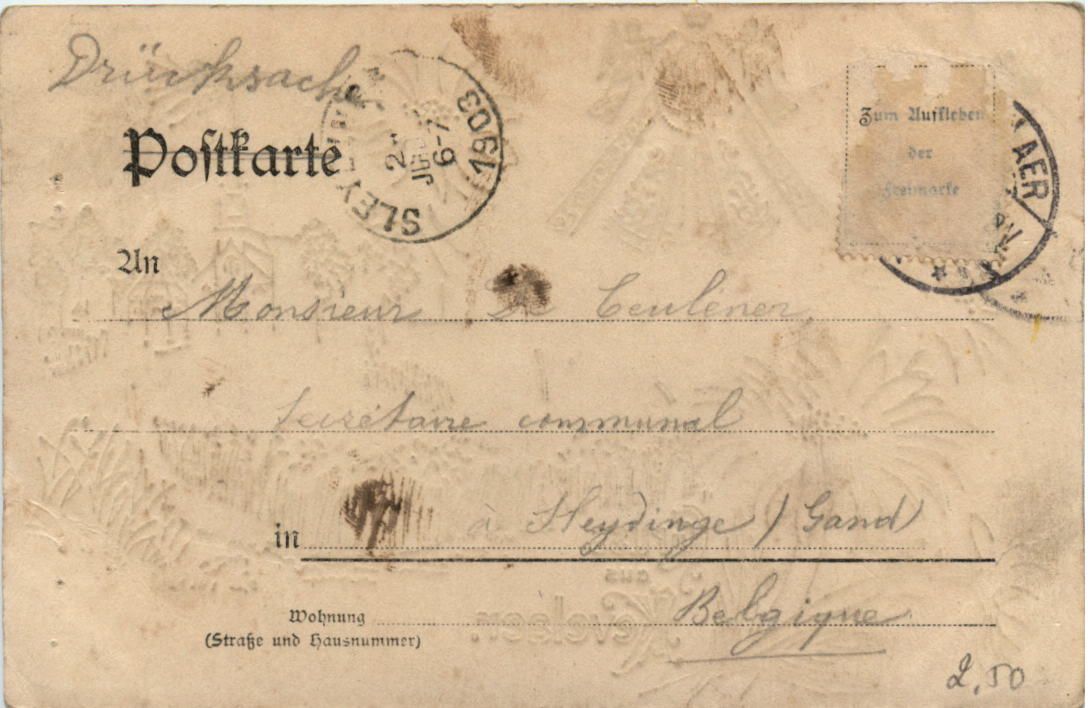 Drücksache
Postkarte
SLEY
2
6-7
1903
Zum Aufkleben
der
Freimarke
AER
An
Monsieur De Ceulener
Secrétaire communal
in
à Sleydinge / Gand)
Belgique
Wohnung
(Straße und Hausnummer)
aus
Kevelaer.
2,50